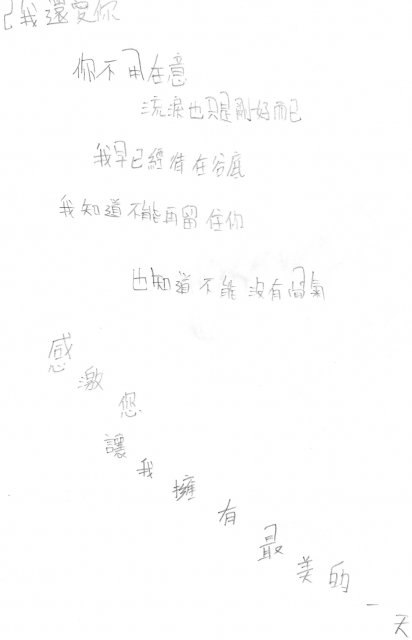 己我還愛你
你不用在意
流淚也只是剛好而已
我早已經待在谷底
我知道不能再留住你
也知道不能沒有骨氣
感激您讓我擁有最美的一天